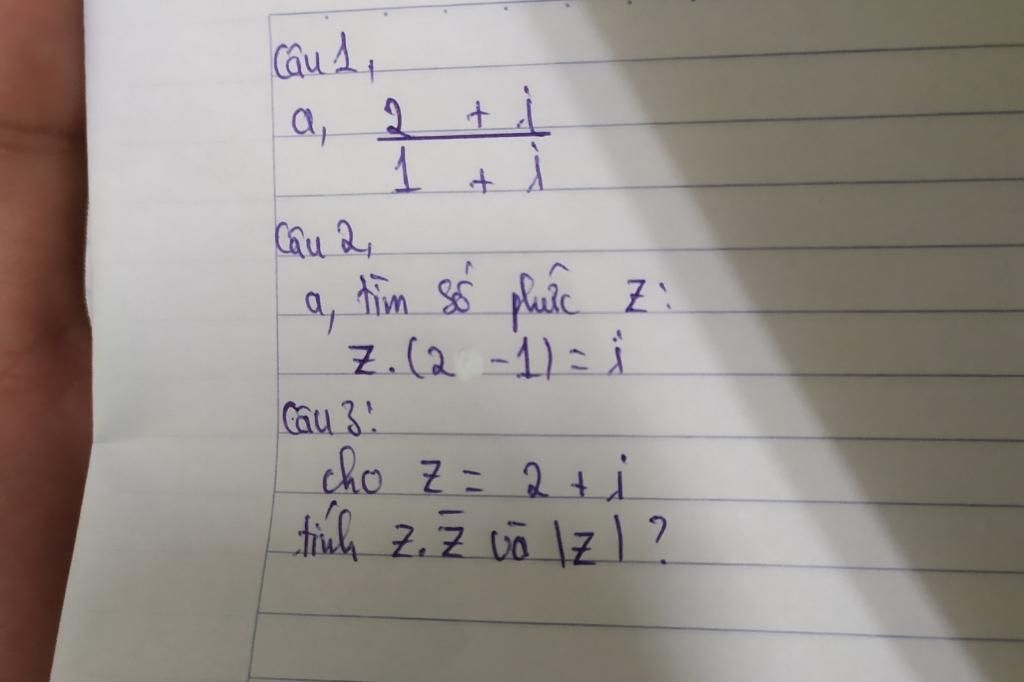 Câu 1,
a, 2 + i
1 + i
Câu 2,
a, tìm số phức z:
z.(2 -1) = i
Câu 3:
cho z = 2 + i
tính z.z̄ và |z| ?